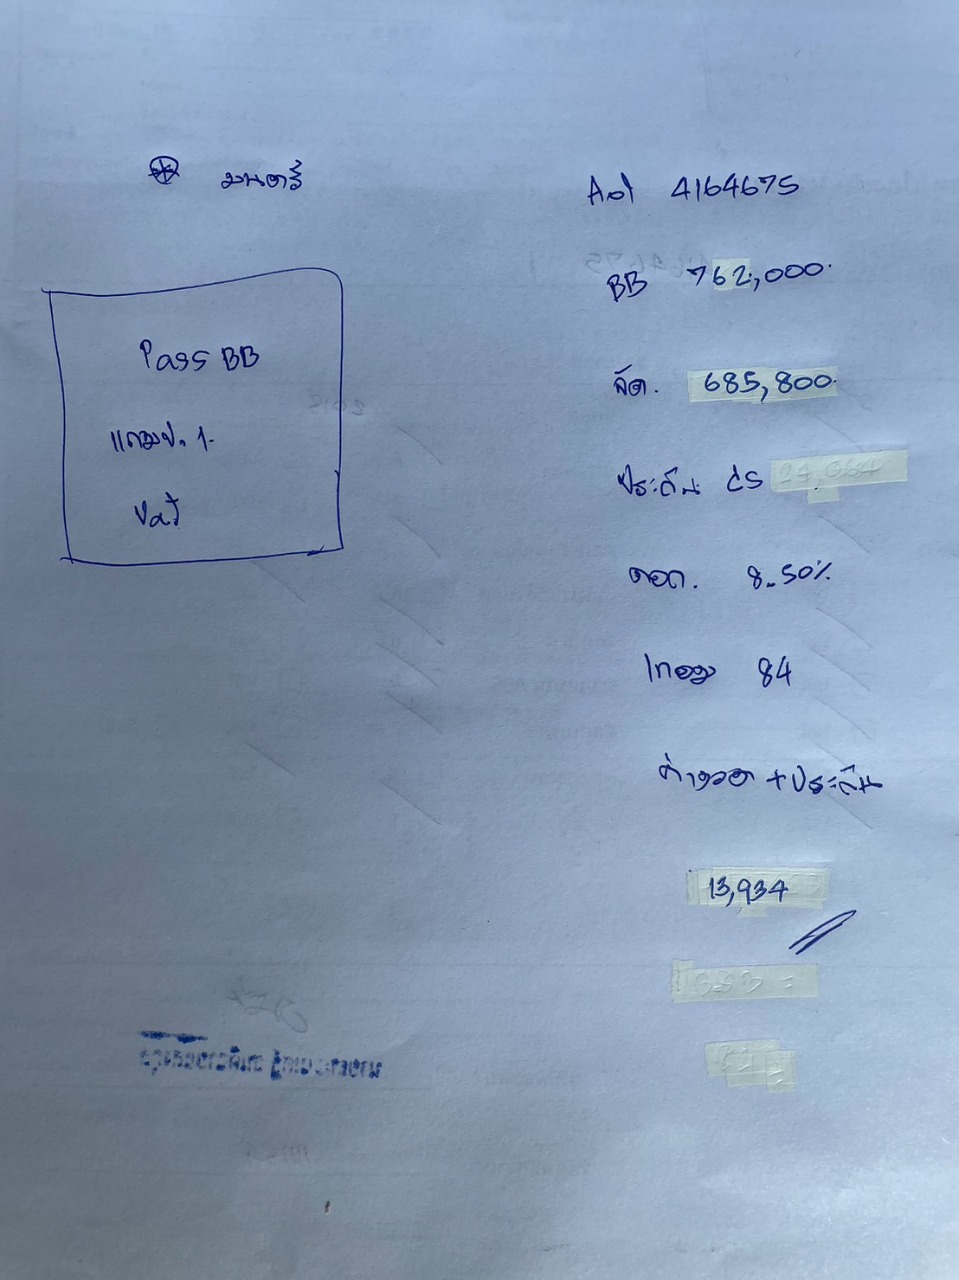 มนตรี
Pass BB
แถมป. 1.
Vat
Aol 4164675
BB 762,000.
จัด. 685,800.
ประกัน CS 24,064
ดอก. 8.50%
เทอม 84
ค่างวด + ประกัน
13,934